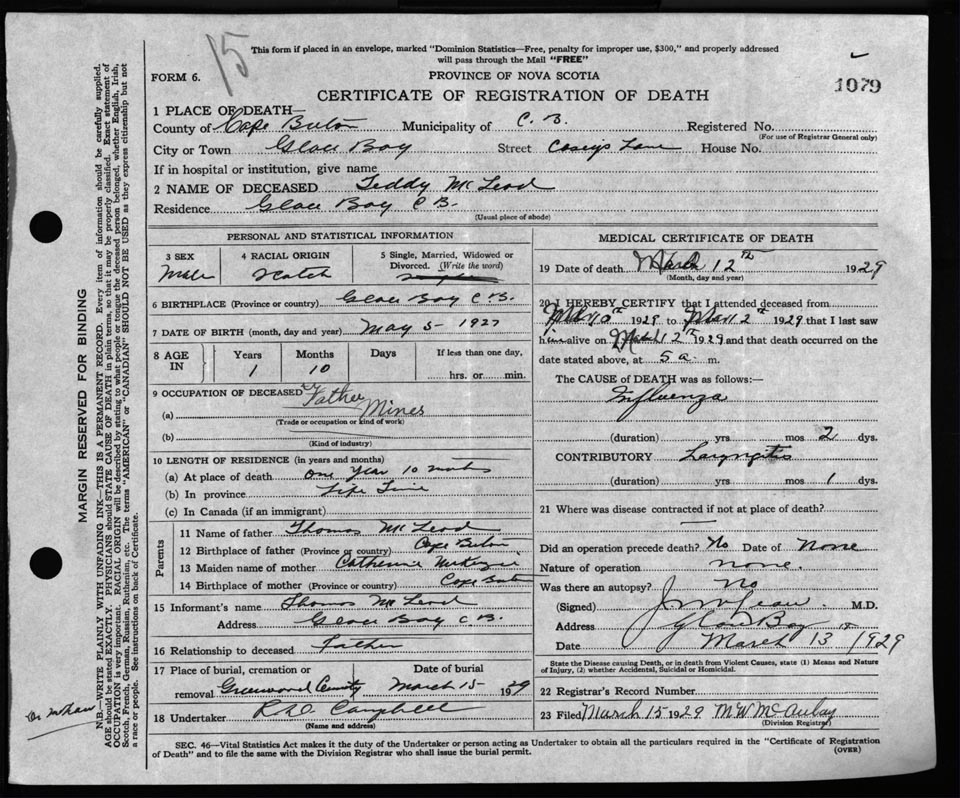 15
This form if placed in an envelope, marked "Dominion Statistics—Free, penalty for improper use, $300," and properly addressed
will pass through the Mail "FREE"
FORM 6.
PROVINCE OF NOVA SCOTIA
1079
CERTIFICATE OF REGISTRATION OF DEATH
1 PLACE OF DEATH—
County of Cape Breton Municipality of C. B. Registered No.
(For use of Registrar General only)
City or Town Glace Bay Street Casey's Lane House No.
If in hospital or institution, give name
2 NAME OF DECEASED Teddy McLeod
Residence Glace Bay C B.
(Usual place of abode)
PERSONAL AND STATISTICAL INFORMATION
3 SEX
Male
4 RACIAL ORIGIN
Scotch
5 Single, Married, Widowed or
Divorced. (Write the word)
6 BIRTHPLACE (Province or country) Glace Bay C.B.
7 DATE OF BIRTH (month, day and year) May 5 - 1927
8 AGE
IN
Years
1
Months
10
Days
If less than one day,
hrs. or min.
9 OCCUPATION OF DECEASED Father
(a) Mines
(Trade or occupation or kind of work)
(b)
(Kind of industry)
10 LENGTH OF RESIDENCE (in years and months)
(a) At place of death one Year 10 months
(b) In province Life Time
(c) In Canada (if an immigrant)
Parents
11 Name of father Thomas McLeod
12 Birthplace of father (Province or country) Cape Breton
13 Maiden name of mother Catherine McKenzie
14 Birthplace of mother (Province or country) Cape Breton
15 Informant's name Thomas McLeod
Address Glace Bay C B.
16 Relationship to deceased Father
17 Place of burial, cremation or
removal Greenwood
Date of burial
March 15 - 1929
18 Undertaker Campbell
(Name and address)
MEDICAL CERTIFICATE OF DEATH
19 Date of death March 12th 1929
(Month, day and year)
20 I HEREBY CERTIFY that I attended deceased from
Mar 10th 1929 to Mar 12th 1929 that I last saw
him alive on March 12th 1929 and that death occurred on the
date stated above, at 5 a. m.
The CAUSE of DEATH was as follows:—
Influenza
(duration) yrs mos 2 dys.
CONTRIBUTORY Laryngitis
(duration) yrs mos 1 dys.
21 Where was disease contracted if not at place of death?
—
Did an operation precede death? No Date of None
Nature of operation none.
Was there an autopsy? No
(Signed) M.D.
Address Glace Bay
Date March 13 1929
State the Disease causing Death, or in death from Violent Causes, state (1) Means and Nature
of Injury, (2) whether Accidental, Suicidal or Homicidal.
22 Registrar's Record Number
23 Filed March 15 1929 M.W. McAulay
(Division Registrar)
SEC. 46—Vital Statistics Act makes it the duty of the Undertaker or person acting as Undertaker to obtain all the particulars required in the "Certificate of Registration
of Death" and to file the same with the Division Registrar who shall issue the burial permit.
(OVER)
MARGIN RESERVED FOR BINDING
N.B.—WRITE PLAINLY WITH UNFADING INK—THIS IS A PERMANENT RECORD. Every item of information should be carefully supplied.
AGE should be stated EXACTLY. PHYSICIANS should STATE CAUSE OF DEATH in plain terms, so that it may be properly classified. Exact statement of
OCCUPATION is very important. RACIAL ORIGIN will be described by stating to what people or tongue the deceased person belonged, whether English, Irish,
Scotch, French, German, Russian, Ruthenian, etc. The terms "AMERICAN" or "CANADIAN" SHOULD NOT BE USED as they express citizenship but not
a race or people. See instructions on back of Certificate.